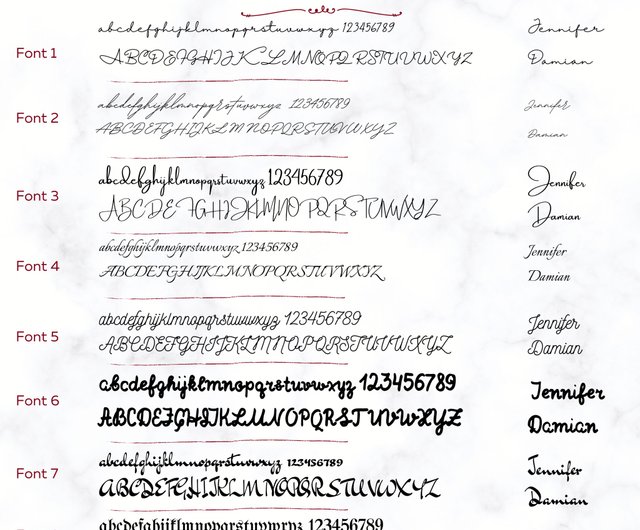 abcdefghyklmnopqrstuvwxyz 123456789
Jennifer
Font 1
ABCDEFGHIJKLMNOPQRSTUVWXYZ
Damian
abcdefghyklmnopqrstuvwxyz 123456789
Jennifer
Font 2
ABCDEFGHIJKLMNOPQRSTUVWXYZ
Damian
abcdefghyklmnopqrstuvwxyz 123456789
Jennifer
Font 3
ABCDEFGHIJKLMNOPQRSTUVWXYZ
Damian
abcdefghijklmnopqrstuvwxyz 123456789
Jennifer
Font 4
ABCDEFGHIJKLMNOPQRSTUVWXYZ
Damian
abcdefghijklmnopqrstuvwxyz 123456789
Jennifer
Font 5
ABCDEFGHIJKLMNOPQRSTUVWXYZ
Damian
abcdefghijklmnopqrstuvwxyz 123456789
Jennifer
Font 6
ABCDEFGHIJKLMNOPQRSTUVWXYZ
Damian
abcdefghijklmnopqrstuvwxyz 123456789
Jennifer
Font 7
ABCDEFGHIJKLMNOPQRSTUVWXYZ
Damian
abcdefghijklmnopqrstuvwxyz 123456789